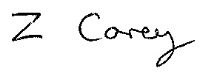 Z Carey